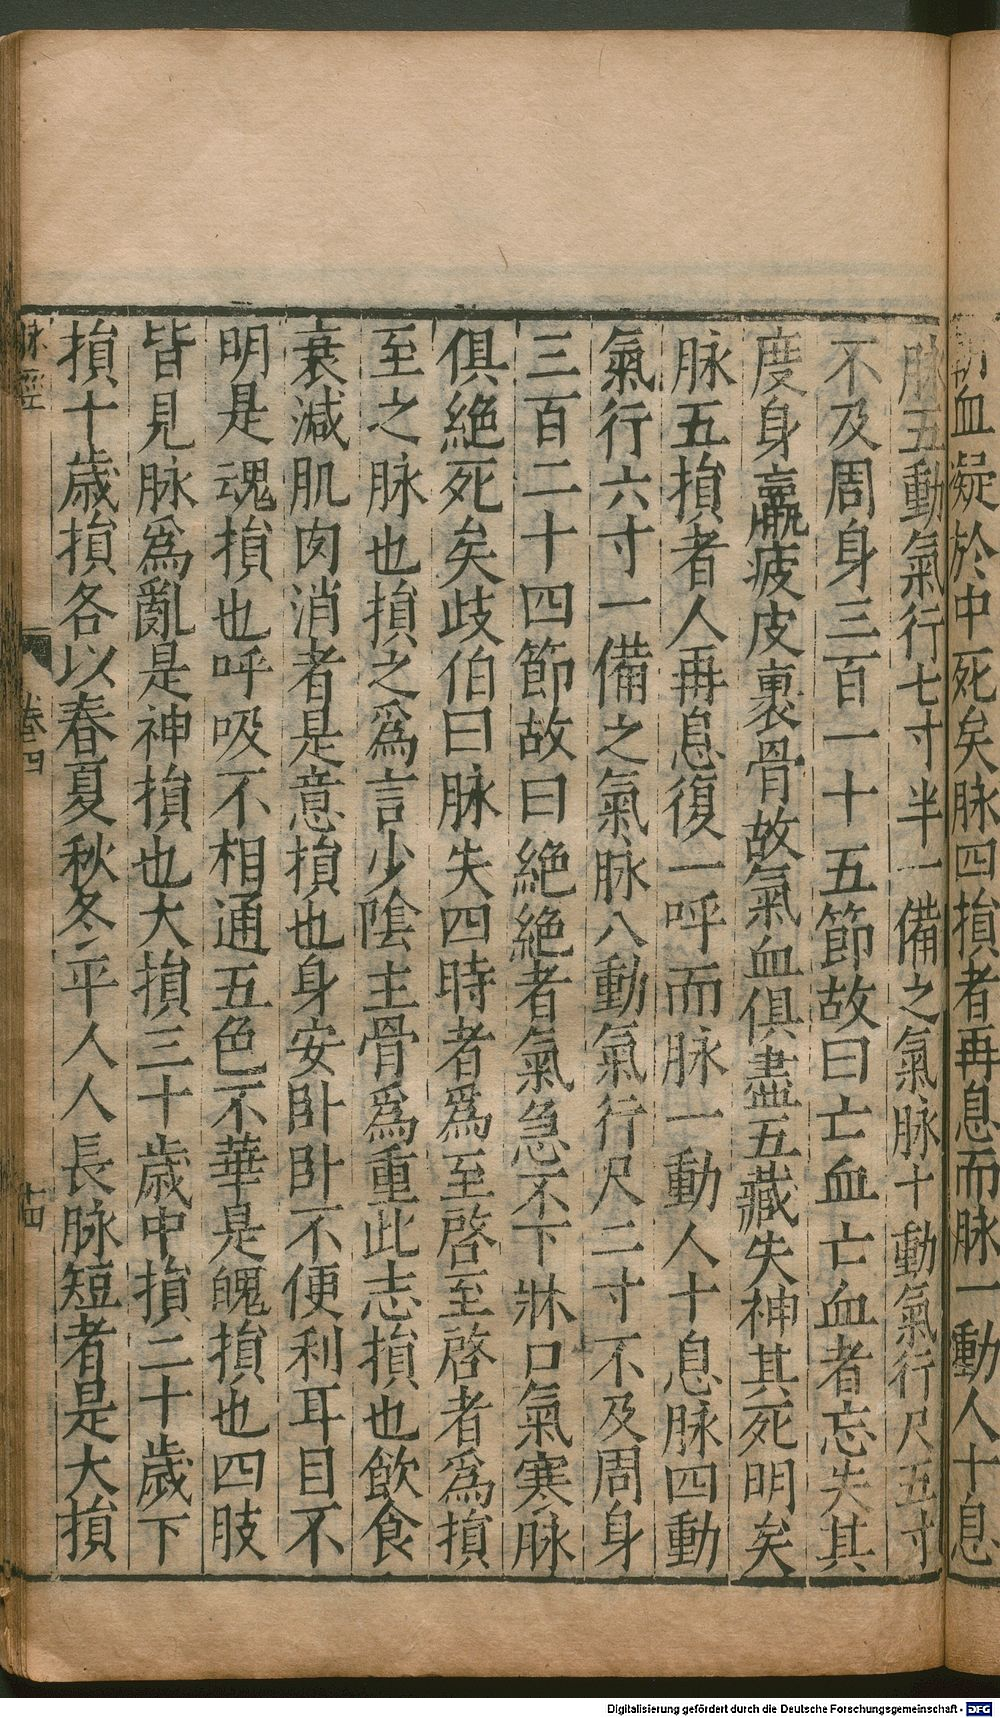 血凝於中死矣脉四損者再息而脉一動人十息
脉五動氣行七寸半一備之氣脉十動氣行尺五寸
不及周身三百一十五節故曰亡血亡血者忘失其
度身羸疲皮裹骨故氣血俱盡五藏失神其死明矣
脉五損者人再息復一呼而脉一動人十息脉四動
氣行六寸一備之氣脉八動氣行尺二寸不及周身
三百二十四節故曰絶絶者氣急不下牀口氣寒脉
俱絶死矣歧伯曰脉失四時者爲至啓至啓者爲損
至之脉也損之爲言少陰主骨爲重此志損也飲食
衰減肌肉消者是意損也身安卧卧不便利耳目不
明是魂損也呼吸不相通五色不華是魄損也四肢
皆見脉爲亂是神損也大損三十歲中損二十歲下
損十歲損各以春夏秋冬平人人長脉短者是大損
脉經
卷四
十四
Digitalisierung gefördert durch die Deutsche Forschungsgemeinschaft - DFG